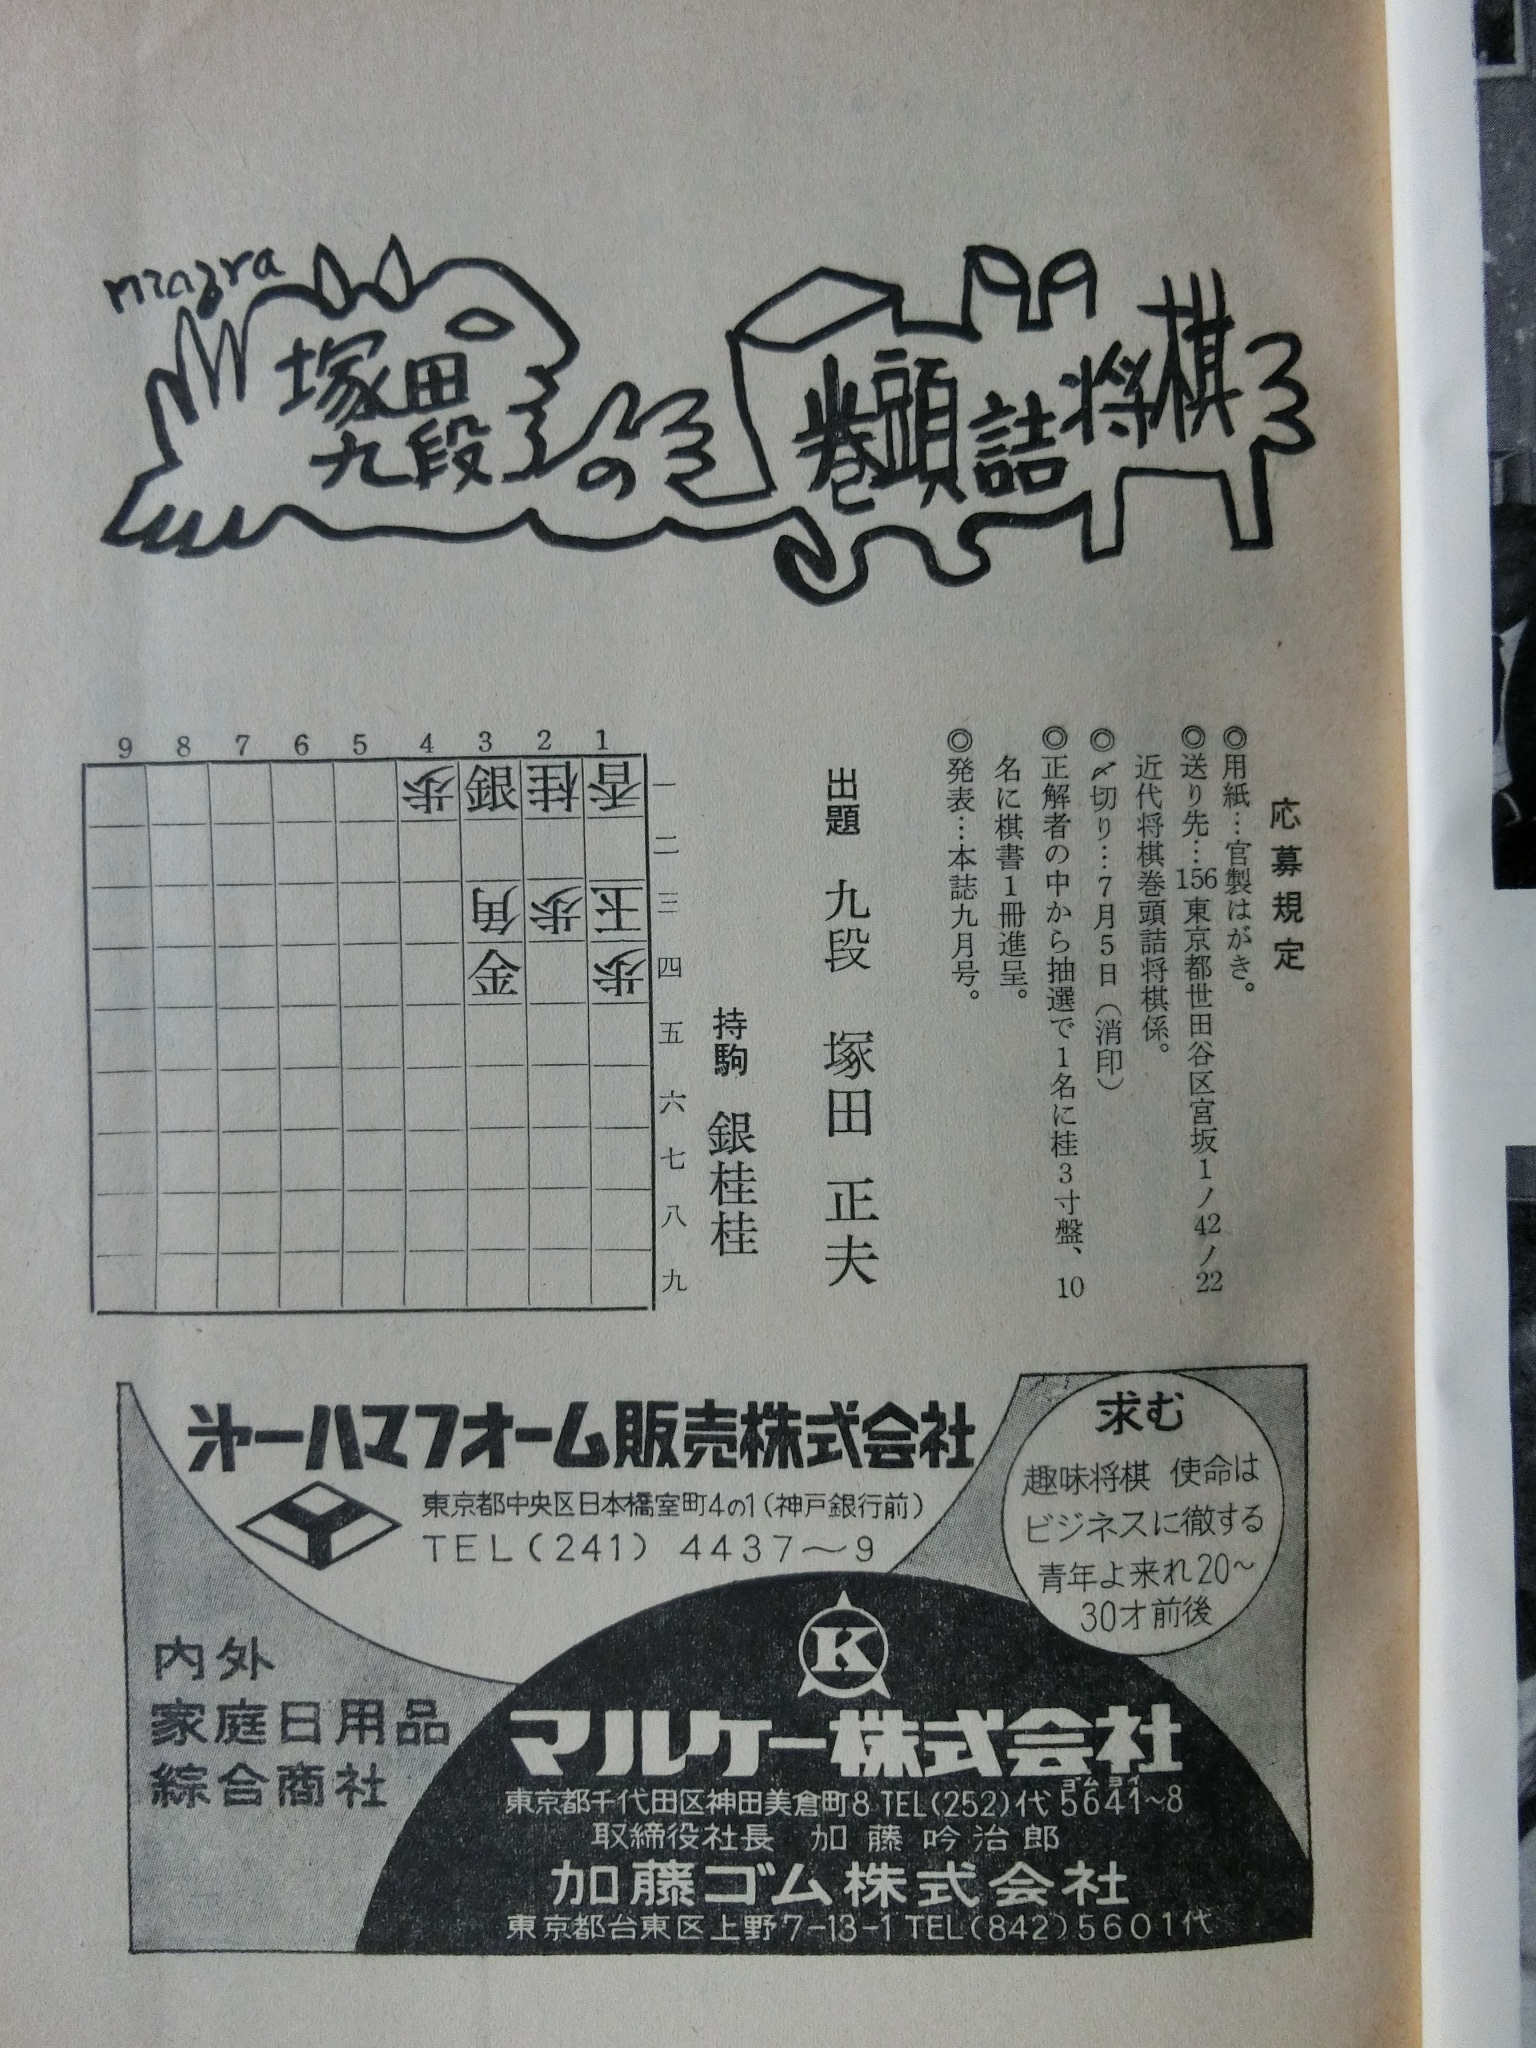 巻頭詰将棋
の
塚田
九段
応募規定
◎用紙…官製はがき。
◎送り先…156東京都世田谷区宮坂1ノ42ノ22
近代将棋巻頭詰将棋係。
◎〆切り…7月5日(消印)
◎正解者の中から抽選で1名に桂3寸盤、10
名に棋書1冊進呈。
◎発表…本誌九月号。
出題 九段 塚田正夫
持駒 銀桂桂
9 8 7 6 5 4 3 2 1
歩 銀 桂 香 一
二
角 歩 玉 三
金 歩 四
五
六
七
八
九
㐧一ハマフオーム販売株式会社
東京都中央区日本橋室町4の1(神戸銀行前)
TEL(241) 4437〜9
求む
趣味将棋 使命は
ビジネスに徹する
青年よ来れ20〜
30才前後
内外
家庭日用品
綜合商社
K
マルケー株式会社
ゴム ヨイ
東京都千代田区神田美倉町8 TEL(252)代5641〜8
取締役社長 加藤吟治郎
加藤ゴム株式会社
東京都台東区上野7-13-1 TEL(842)5601代